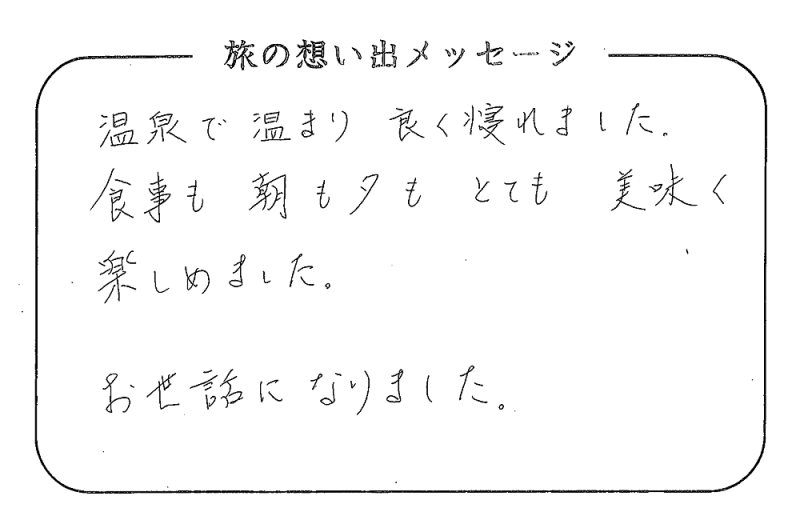 旅の想い出メッセージ
温泉で温まり 良く寝れました.
食事も 朝も夕も とても 美味く
楽しめました。
お世話に なりました。